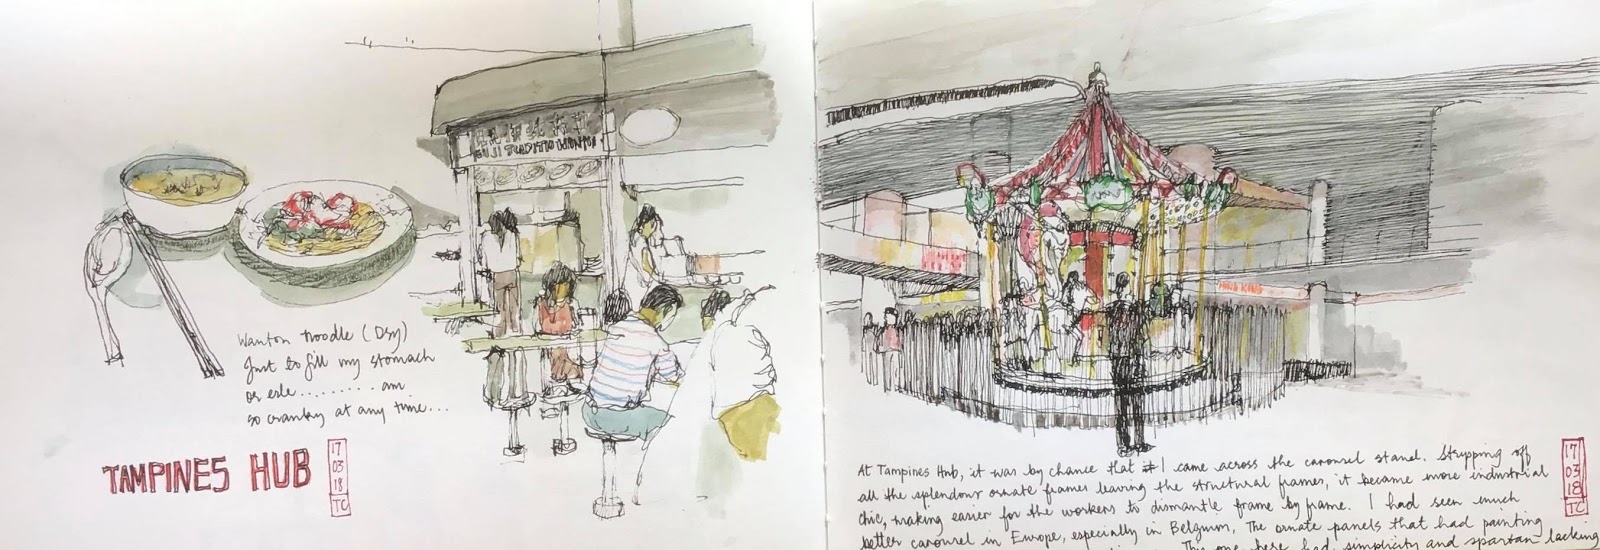 Wanton Noodle (Dry)
Just to fill my stomach
or esle........ am
so cranky at any time...
TAMPINES HUB
17
03
18
TC
MING KING
At Tampines Hub, it was by chance that I came across the carousel stand. Stripping off
all the splendour ornate frames leaving the structural frames, it became more industrial
chic, making easier for the workers to dismantle frame by frame. I had seen much
better carousel in Europe, especially in Belgium, The ornate panels that had painting
This one here had simplicity and spartan lacking
17
03
18
TC